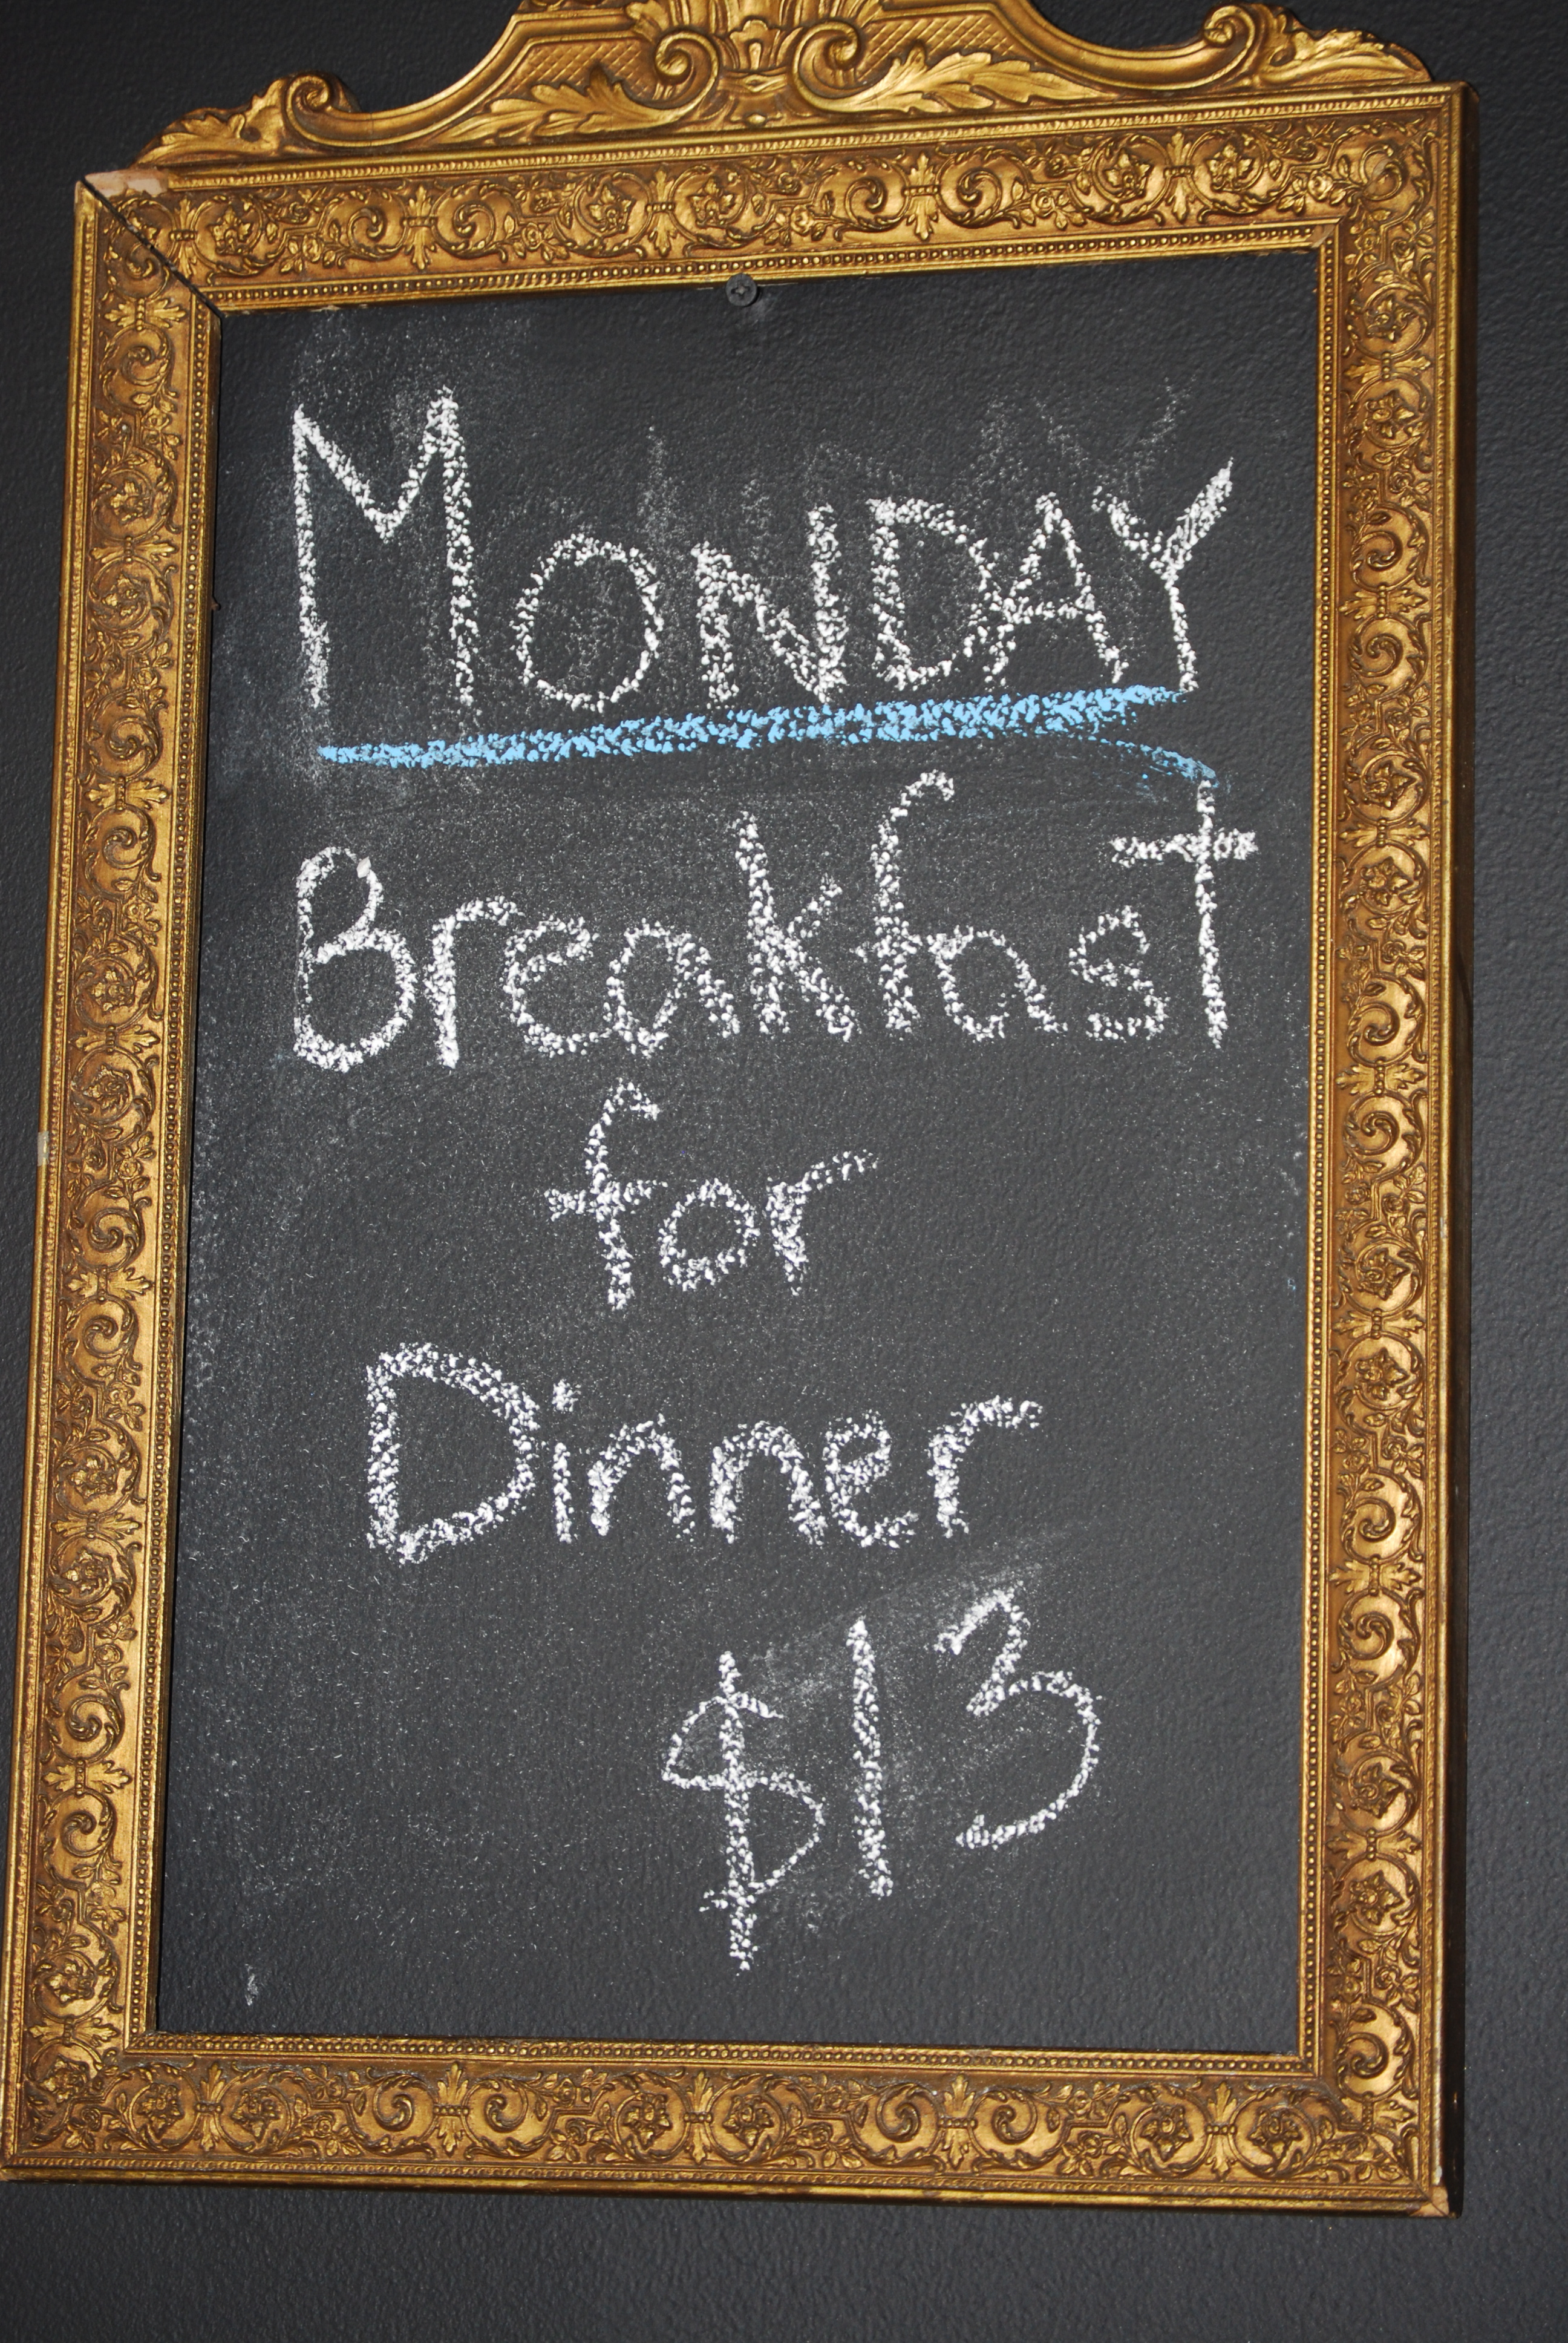 MONDAY
Breakfast
for
Dinner
$13